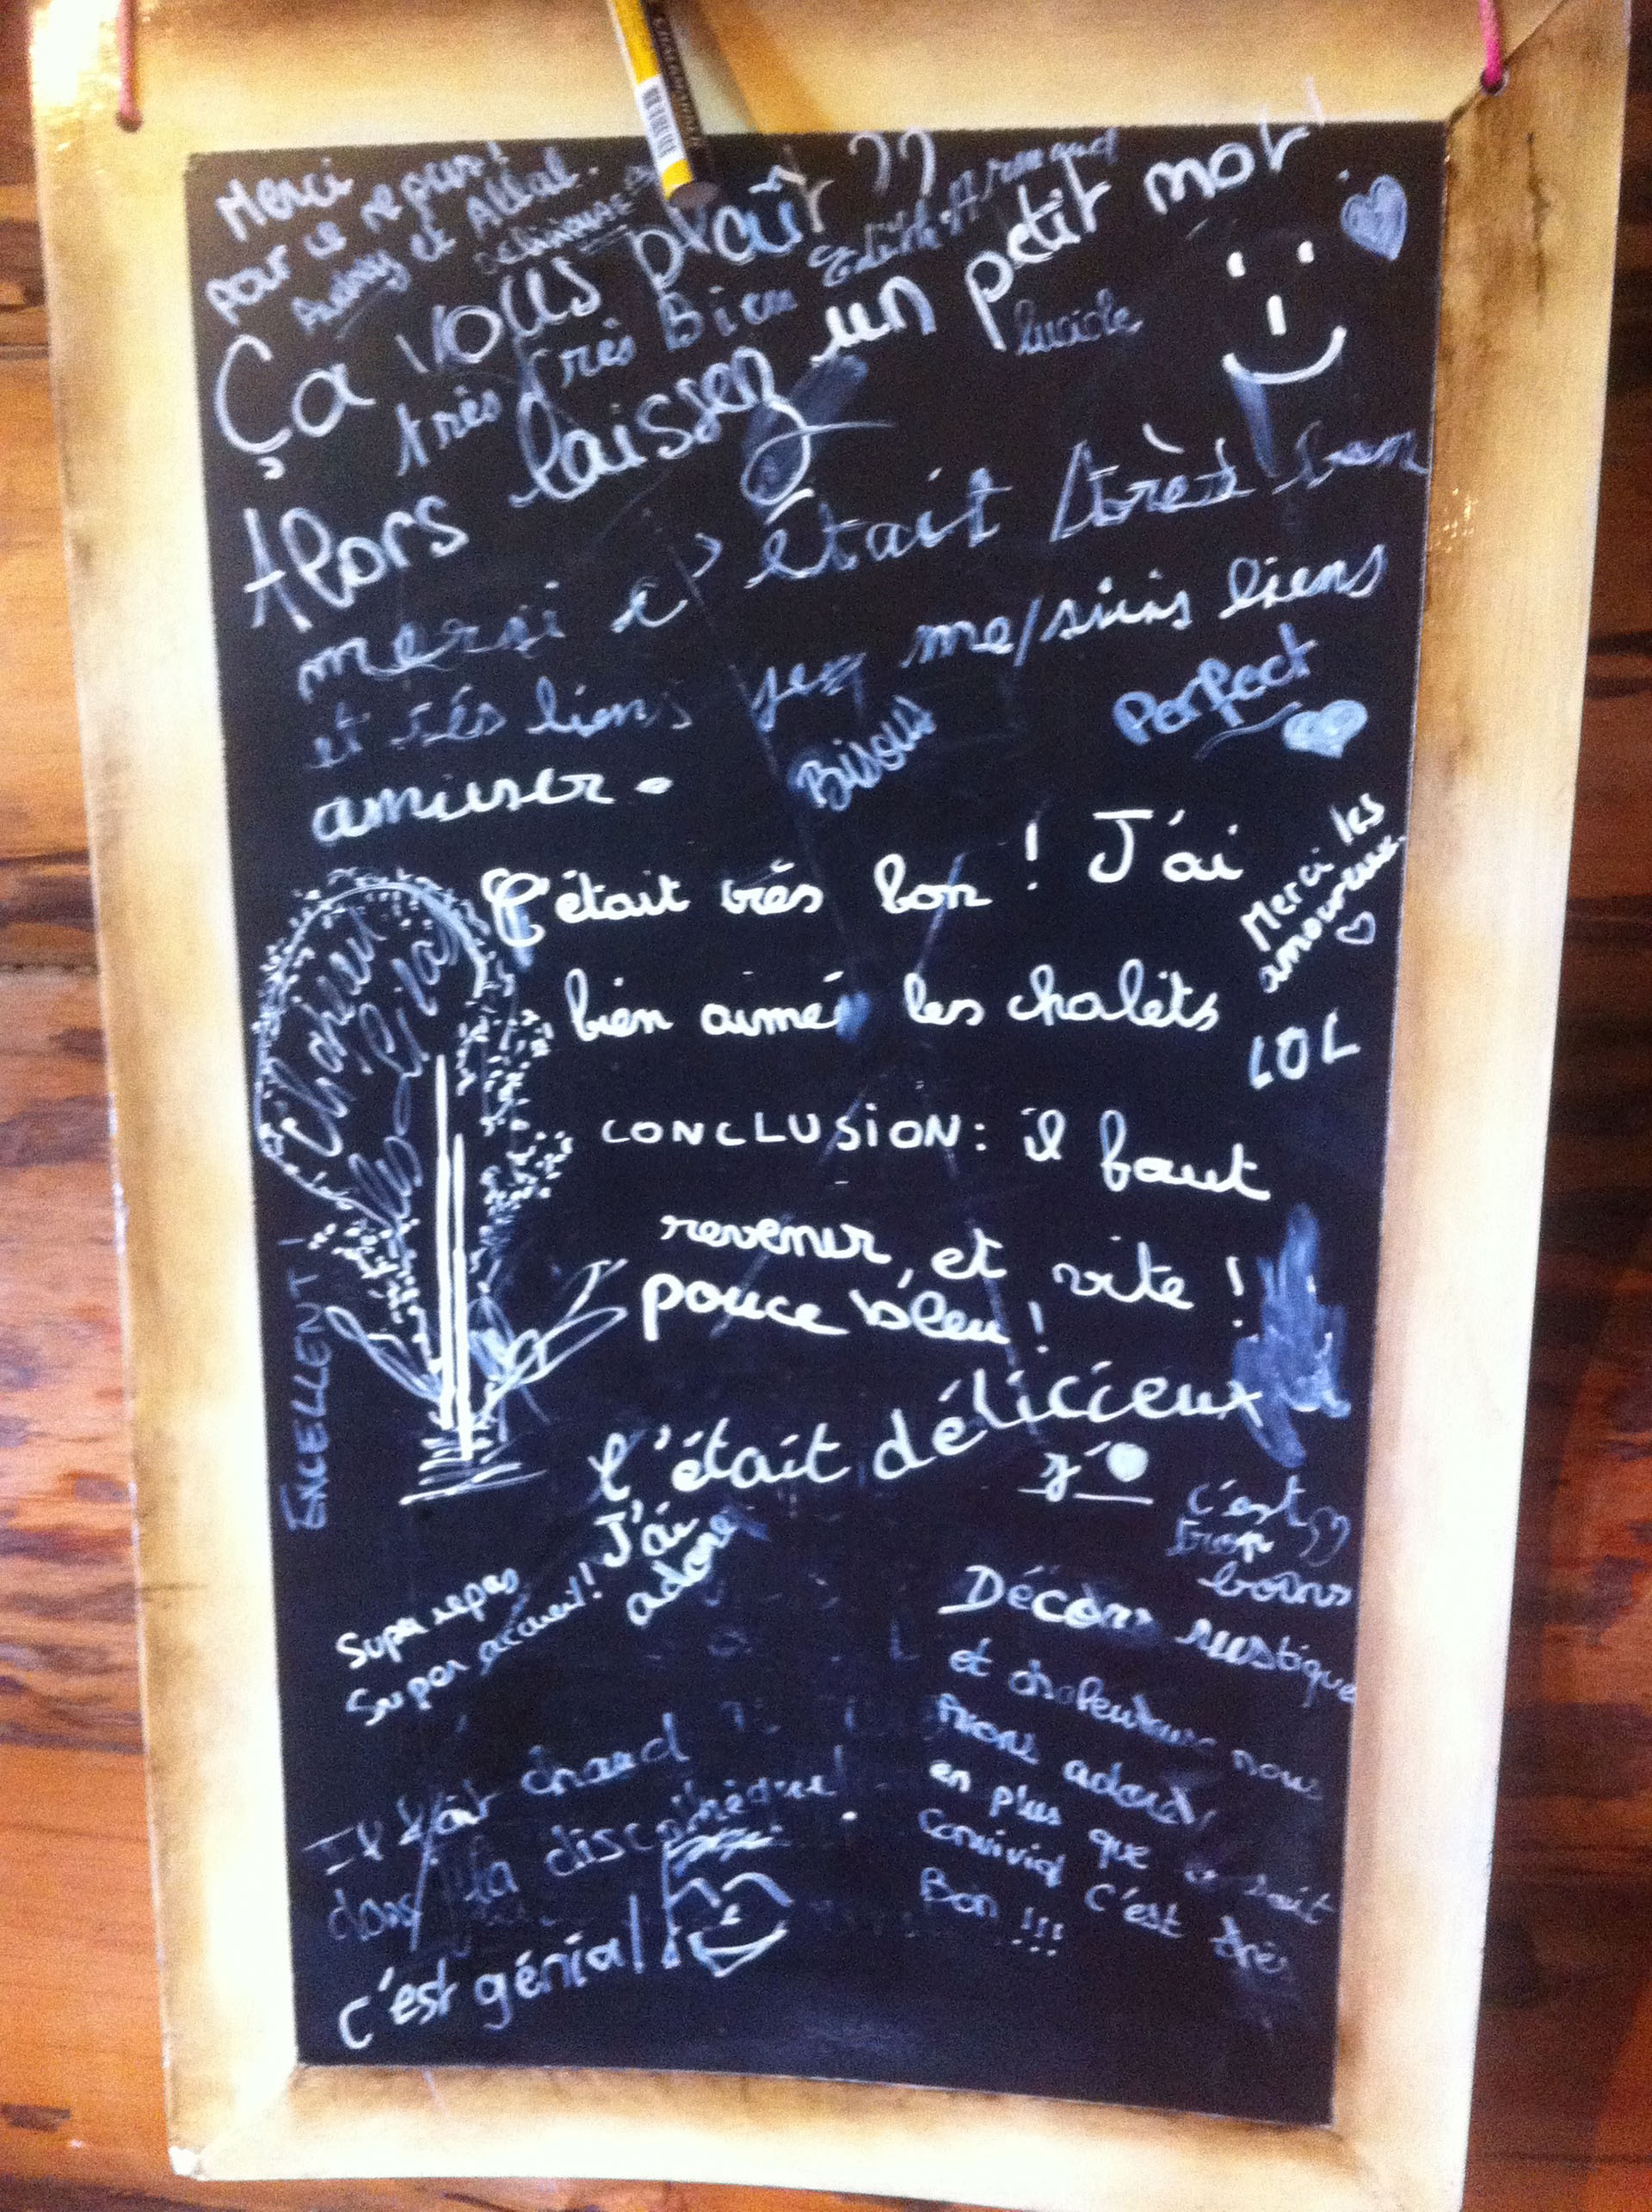 Merci
pour ce repas!
Ça vous plaît ??
très très Bien
Edith
Alors laissez un petit mot!
lucide
merci c'était très bon
et très biens je me suis biens
amuser.
Bisous
Perfect
C'était très bon ! J'ai
bien aimé les chalets
Merci les
amoureux.
LOL
CONCLUSION: il faut
revenir, et vite !
pouce bleu !
EXCELLENT !
C'était délicieux
J'ai
adoré
c'est
trop
bons
Super repas
Super accueil!
Décors rustique
et chaleureux nous
avons adoré,
en plus que ce soit
convivial c'est très
Bon !!!
Il fait chaud
dans la discothèque!
c'est génial